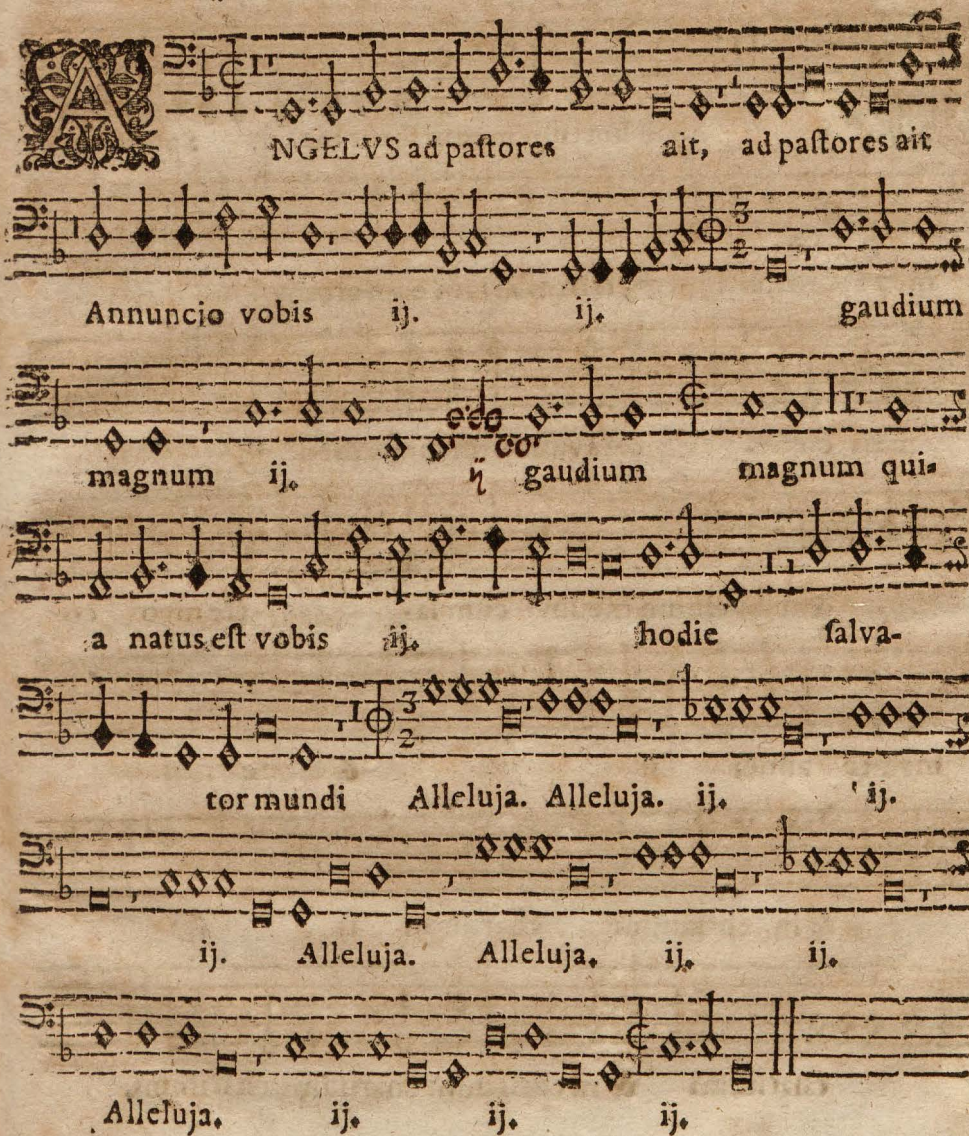 ANGELVS ad paſtores ait, ad paſtores ait
Annuncio vobis ij. ij. gaudium
magnum ij. ij gaudium magnum qui-
a natus eſt vobis ij. hodie ſalva-
tor mundi Alleluja. Alleluja. ij. ij.
ij. Alleluja. Alleluja. ij. ij.
Alleluja. ij. ij. ij.